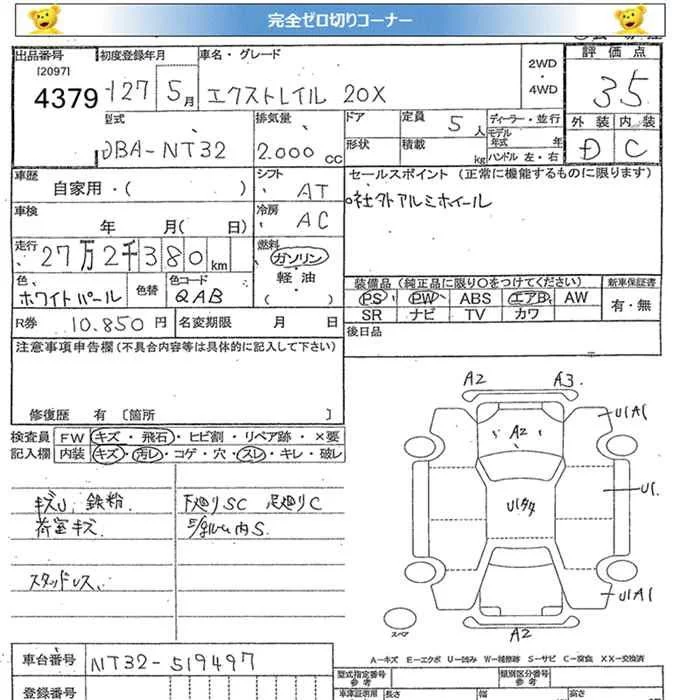 完全ゼロ切りコーナー
出品番号 初度登録年月 車名・グレード 2WD・4WD 評価点
[2097]
4379 127 5月 エクストレイル 20X 35
型式 排気量 ドア 定員 5人 ディーラー・並行 外装 内装
DBA-NT32 2.000cc 形状 積載 kg モデル年式 年 ハンドル 左・右 D C
車歴 自家用・( ) シフト AT セールスポイント (正常に機能するものに限ります)
車検 年 月( 日) 冷房 AC 社外アルミホイール
走行 27万2千380km 燃料 ガソリン 軽油 ( )
色 ホワイトパール 色替 色コード QAB
装備品 (純正品に限り○をつけてください) 新車保証書
PS PW ABS エアB AW 有・無
SR ナビ TV カワ
R券 10.850円 名変期限 月 日 後日品
注意事項申告欄 (不具合内容等は具体的に記入して下さい)
修復歴 有 [箇所 ]
検査員記入欄 FW キズ・飛石・ヒビ割・リペア跡・×要
内装 キズ・汚レ・コゲ・穴・スレ・キレ・破レ
キズU 鉄粉 下廻りSC 足廻りC
荷室キズ 内S
スタッドレス
A2 A3
A2 U1A1
U1
U1A1
A2
スペア
A-キズ E-エクボ U-凹み W-補修跡 S-サビ C-腐食 XX-交換済
車台番号 NT32-519497
型式指定番号 参考 類別区分番号 参考
登録番号 車庫証明用 長さ 幅 高さ